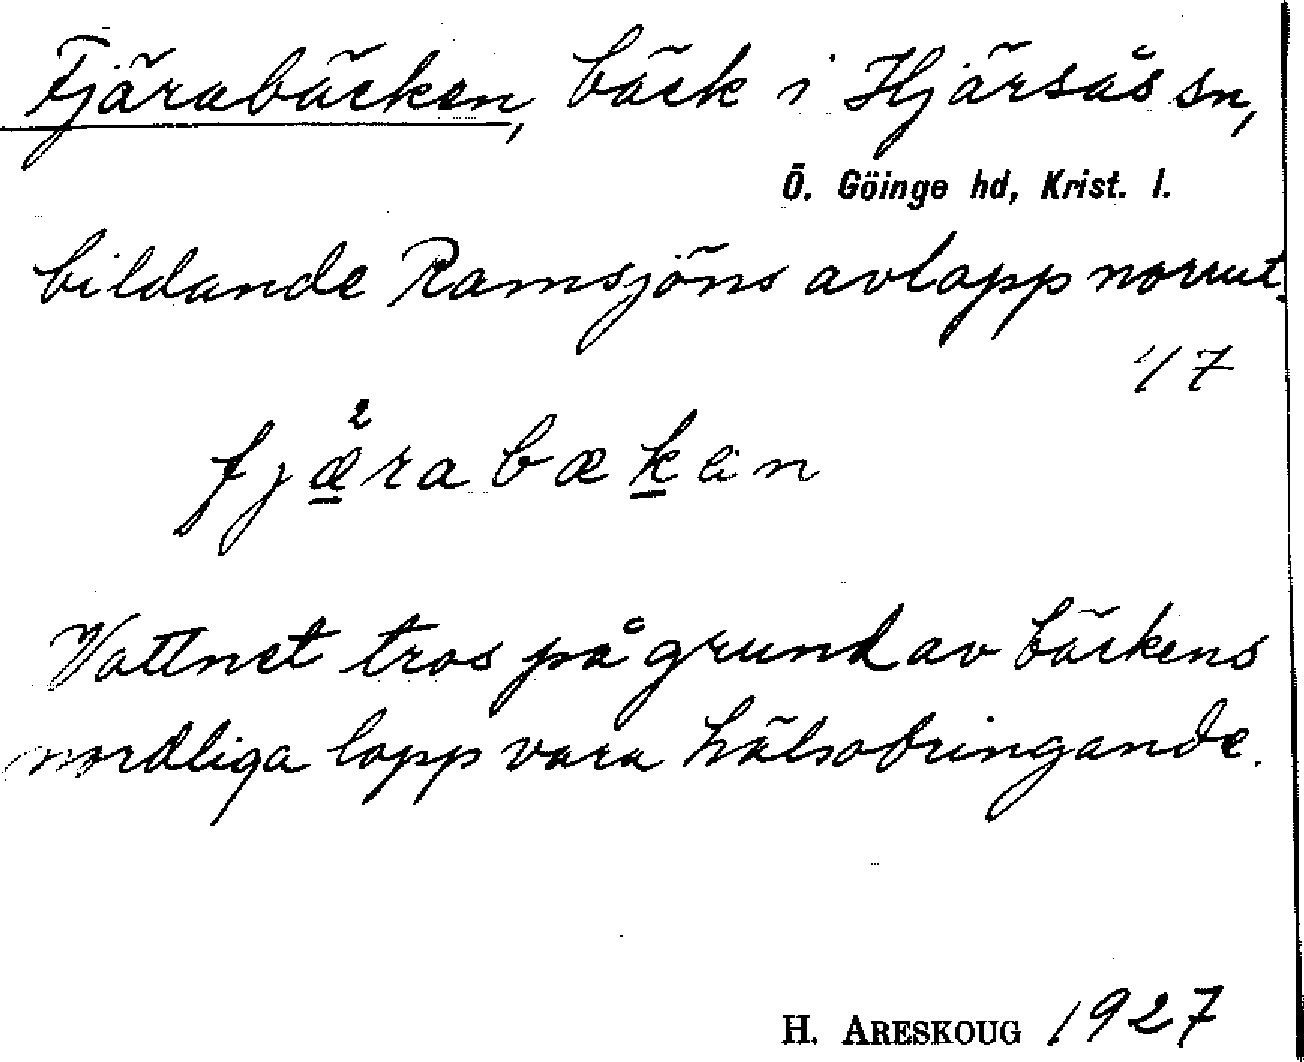 Fjärabäcken, bäck i Hjärsås sn,
Ö. Göinge hd, Krist. l.
bildande Ramsjöns avlopp norrut.
1/7
fjæ²rabækan
Vattnet tros på grund av bäckens
nordliga lopp vara hälsobringande.
H. ARESKOUG 1927